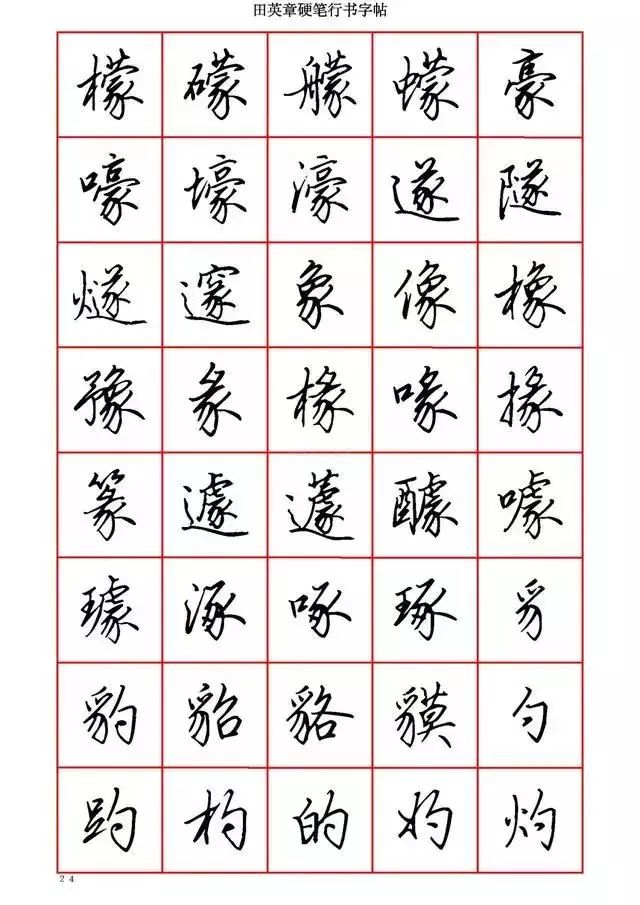 田英章硬笔行书字帖
檬礞艨蠓豪
嚎壕濠遂隧
燧邃象像橡
豫彖椽喙掾
篆遽蘧醵噱
璩涿啄琢豸
豹貂貉貘勺
趵杓的妁灼
24